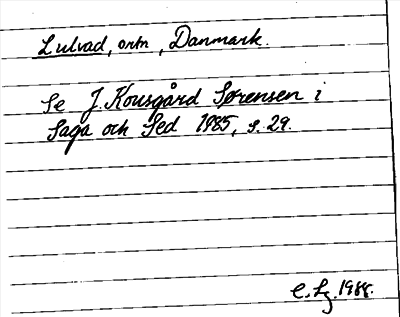 Lulvad, ortn, Danmark.
Se J. Kousgård Sørensen i
Saga och Sed 1985, s. 29.
1988.